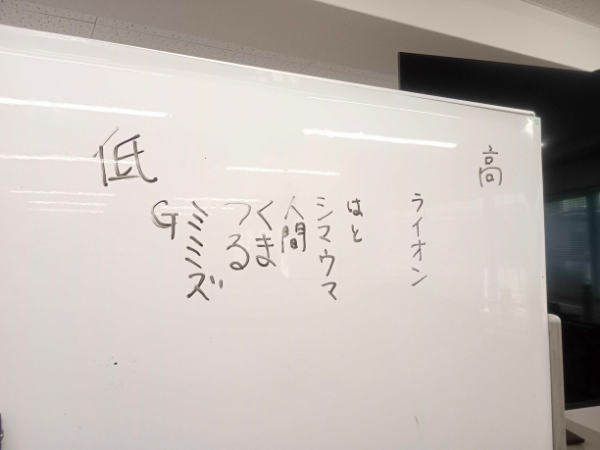 低
高
G
ミミズ
つる
くま
人間
シマウマ
はと
ライオン